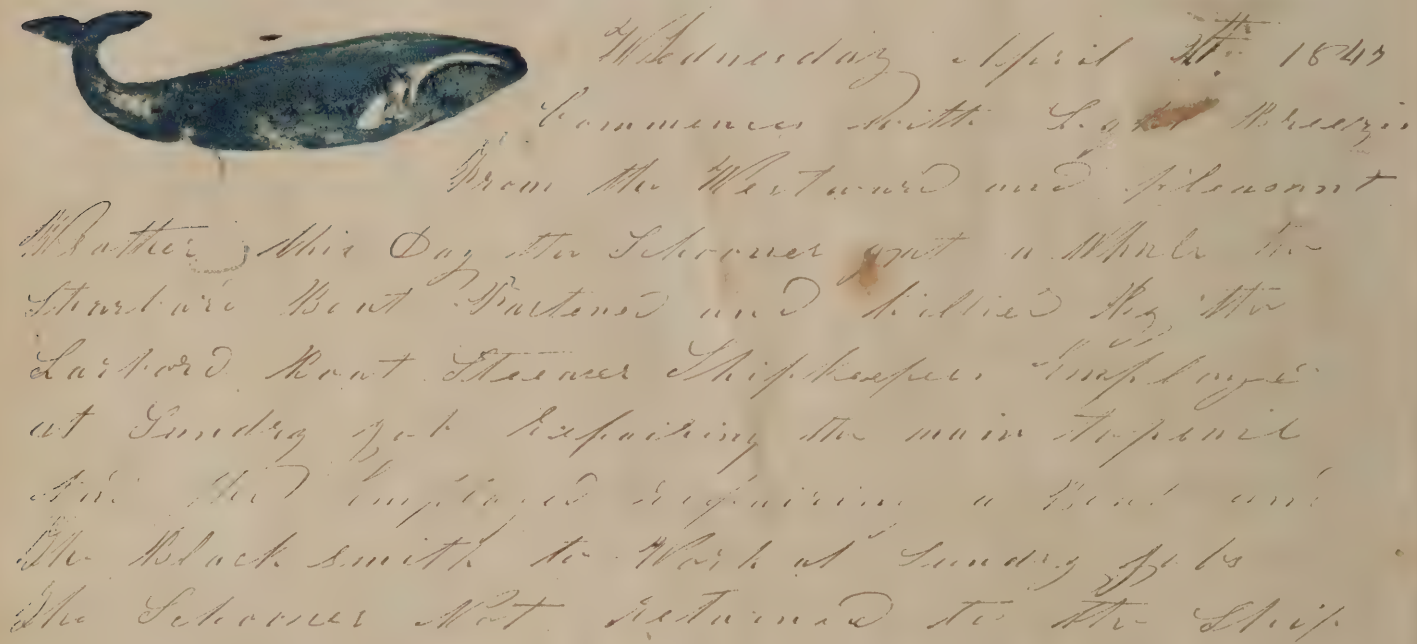 Wednesday April 1847
Commences with Light Breezes
From the Westward and pleasant
Weather this Day the Schooner got a Whale the
Starbord Boat Fastened and killied By the
Larbord Boat Steearer Shipkeepers Employed
at Sundry gob Repairing the main topsail
employed repairing a Boat and
The Black smith to Work at Sundry jobs
The Schooner Not Returned to the Ship